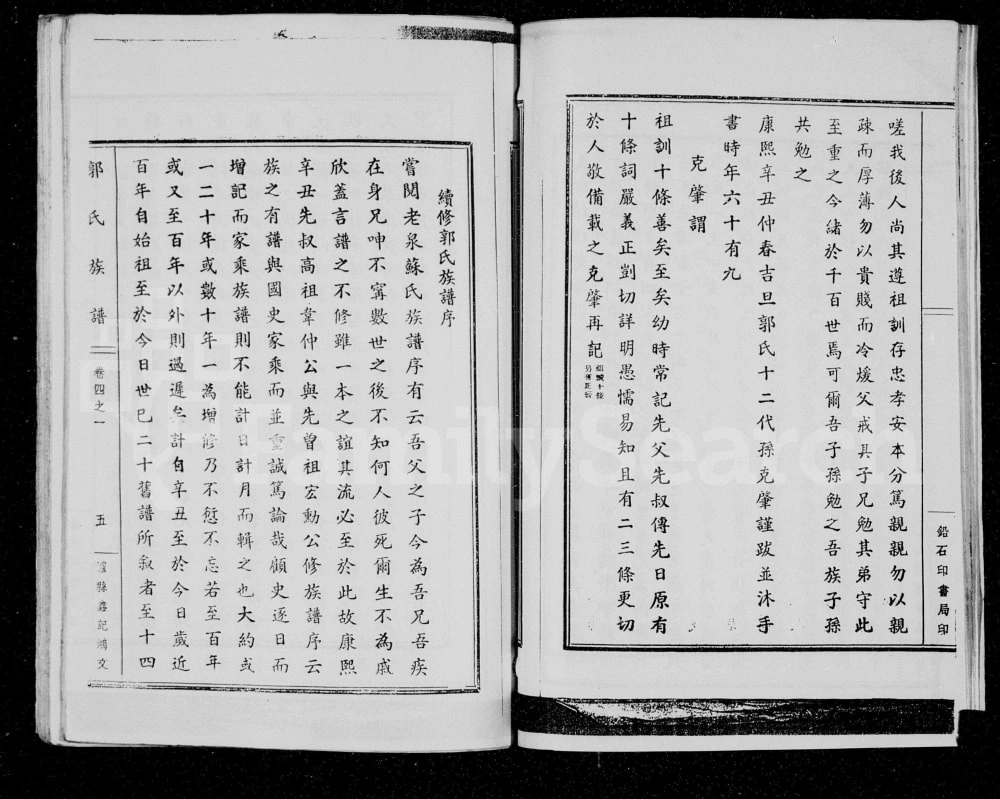 嗟我後人尚其遵祖訓存忠孝安本分篤親親勿以親
疎而厚薄勿以貴賤而冷煖父戒其子兄勉其弟守此
至重之今緒於千百世焉可爾吾子孫勉之吾族子孫
共勉之
康熙辛丑仲春吉旦郭氏十二代孫克肇謹跋並沐手
書時年六十有九
克肇謂
祖訓十條善矣至矣幼時常記先父先叔傳先日原有
十條詞嚴義正剴切詳明愚懦易知且有二三條更切
於人敬備載之克肇再記
鉛石印書局印
續修郭氏族譜序
嘗閱老泉蘇氏族譜序有云吾父之子今為吾兄吾疾
在身兄呻不寗數世之後不知何人彼死爾生不為戚
欣蓋言譜之不修雖一本之誼其流必至於此故康熙
辛丑先叔高祖韋仲公與先曾祖宏勳公修族譜序云
族之有譜與國史家乘而並重誠篤論哉顧史逐日而
增記而家乘族譜則不能計日計月而輯之也大約或
一二十年或數十年一為增修乃不愆不忘若至百年
或又至百年以外則過遲矣計自辛丑至於今日歲近
百年自始祖至於今日世已二十舊譜所叙者至十四
郭氏族譜 卷四之一 五 縣鑫記鴻文
FamilySearch